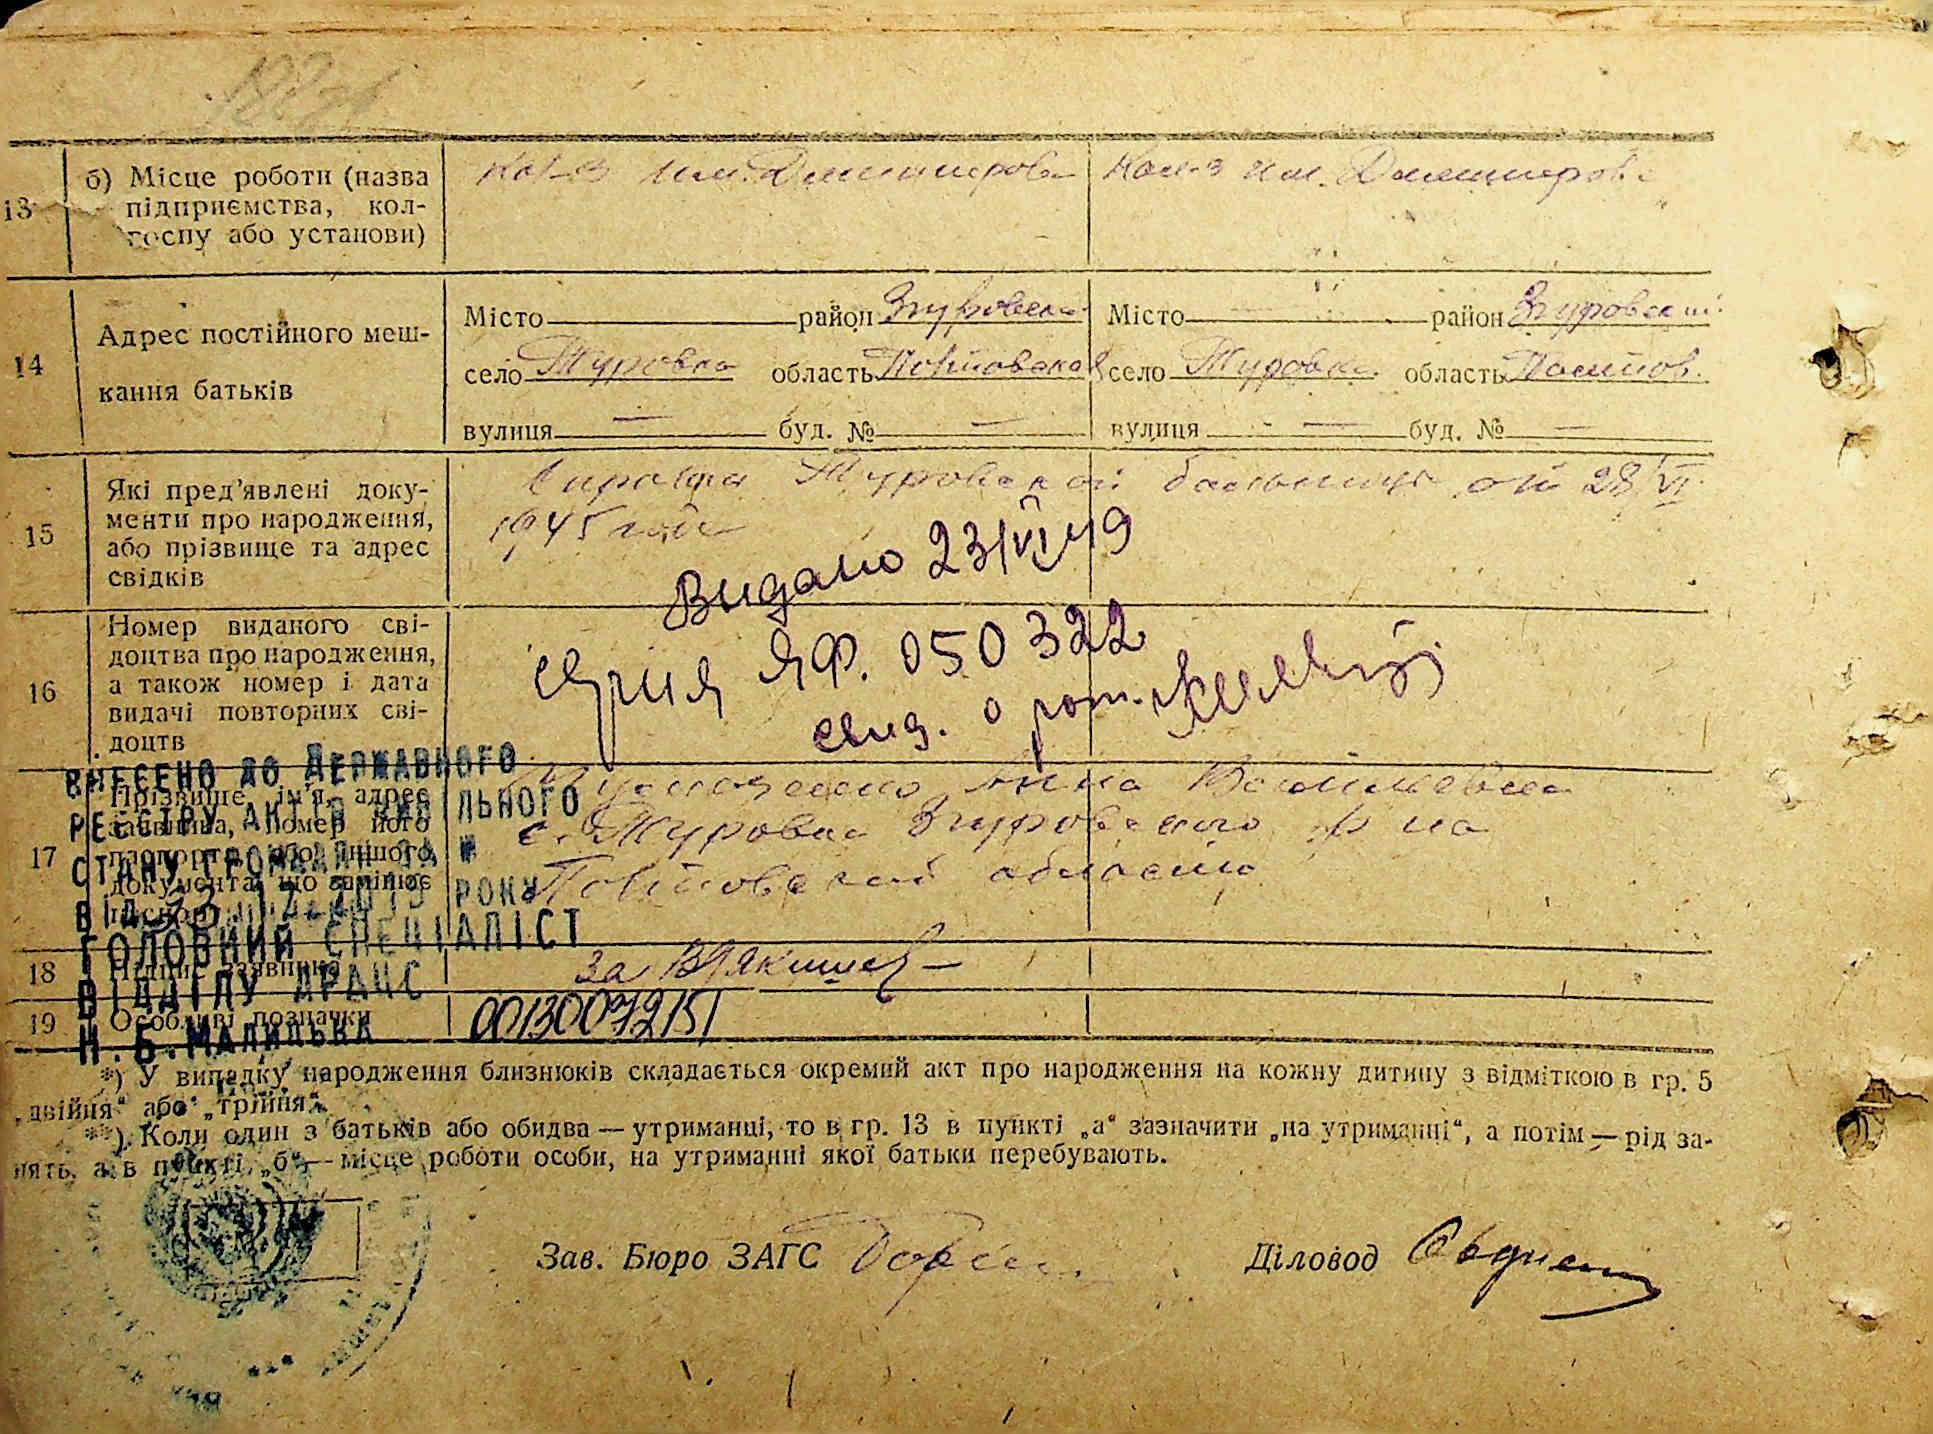 13 б) Місце роботи (назва підприємства, колгоспу або установи)
Кол-з им. Димитрова Кол-з им. Димитрова
14 Адрес постійного мешкання батьків
Місто район Згуровский Місто район Згуровский
село Журовка область Полтовская село Журовка область Полтов.
вулиця — буд. № — вулиця — буд. № —
15 Які пред'явлені документи про народження, або прізвище та адрес свідків
Справка Журовской больницы от 28/VI
1945 года
Видано 23/VI 49
16 Номер виданого свідоцтва про народження, а також номер і дата видачі повторних свідоцтв
серия ЯФ. 050322
17 Прізвище, ім'я, адрес заявника, номер його паспорта або іншого документа, що замінює паспорт
Анна
с. Журовка Згуровского р на
Полтовской области
ВНЕСЕНО ДО ДЕРЖАВНОГО
РЕЄСТРУ АКТІВ ЦИВІЛЬНОГО
СТАНУ ГРОМАДЯН ЗА №
ВІД РОКУ
ГОЛОВНИЙ СПЕЦІАЛІСТ
ВІДДІЛУ ДРАЦС
18 Підпис заявника
за
19 Особливі позначки
00130072151
*) У випадку народження близнюків складається окремий акт про народження на кожну дитину з відміткою в гр. 5
„двійня" або „трійня".
**) Коли один з батьків або обидва — утриманці, то в гр. 13 в пункті „а" зазначити „на утриманці", а потім — рід за-
нять, а в пункті „б" — місце роботи особи, на утриманні якої батьки перебувають.
Зав. Бюро ЗАГС Діловод